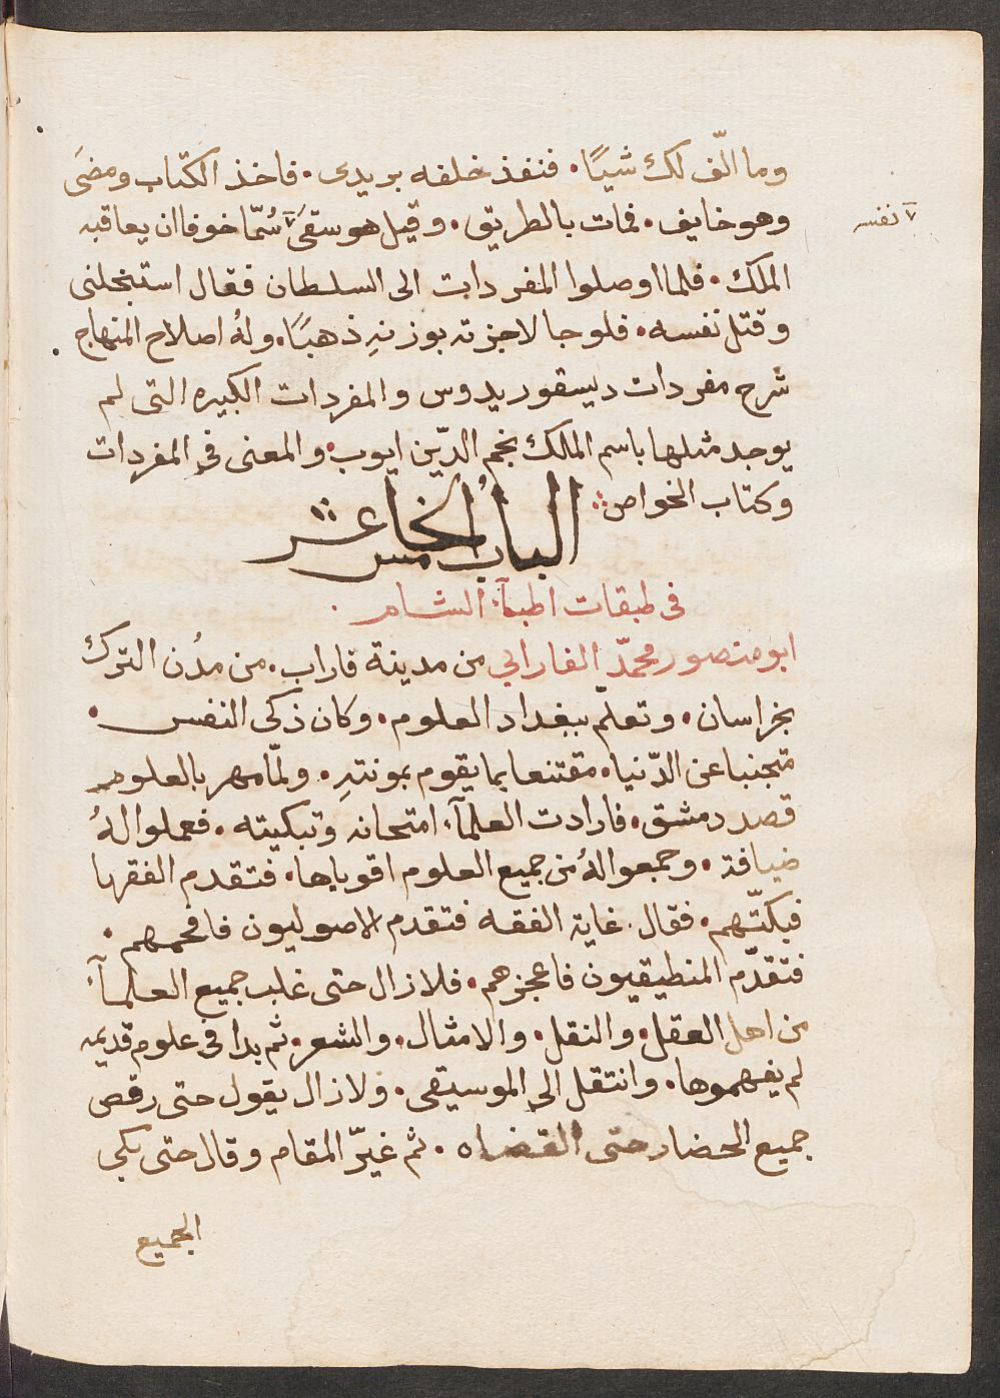 وما الّف لك شيًا. فنفذ خلفه بريدى. فاخذ الكتاب ومضَى
وهو خايف. فمات بالطريق. وقيل هو سقىَ ٧ سُمّا خوفا ان يعاقبه
٧ نفسه
الملك. فلما اوصلوا المفردات الى السلطان فقال استبخلنى
وقتل نفسه. فلو جا لاجزته بوزنهِ ذهبًا. ولهُ اصلاح المنهاج
شرح مفردات ديسقوريدوس والمفردات الكبيره التى لم
يوجد مثلها باسم المالك نجم الدّين ايوب. والمعنى فى المفردات
وكتاب الخواص
البابُ الخامس عشر
فى طبقات اطبآء الشام
ابو منصور محمدّ الفارابي من مدينة فاراب. من مدُن الترك
بخراسان. وتعلّم ببغداد العلوم. وكان ذكى النفس.
متجنبا عن الدّنيا. مقتنعا بما يقوم بمونتهِ. ولمّا مهر بالعلوم
قصد دمشق. فارادت العلمآء امتحانه وتبكيته. فعملوا لهُ
ضيافة. وجمعوا لهُ من جميع العلوم اقوياها. فتقدم الفقها
فبكتّهم. فقال. غاية الفقه فتقدم الاصوليون فافحمهم.
فتقدّم المنطيقيون فاعجزهم. فلا زال حتى غلب جميع العلمآء
من اهل العقل. والنقل. والامثال. والشعر. ثم بدا فى علوم قديمه
لم يفهموها. وانتقل الى الموسيقى. ولا زال يقول حتى رقص
جميع الحضار حتى القضاه. ثم غيرّ المقام وقال حتى بكي
الجميع